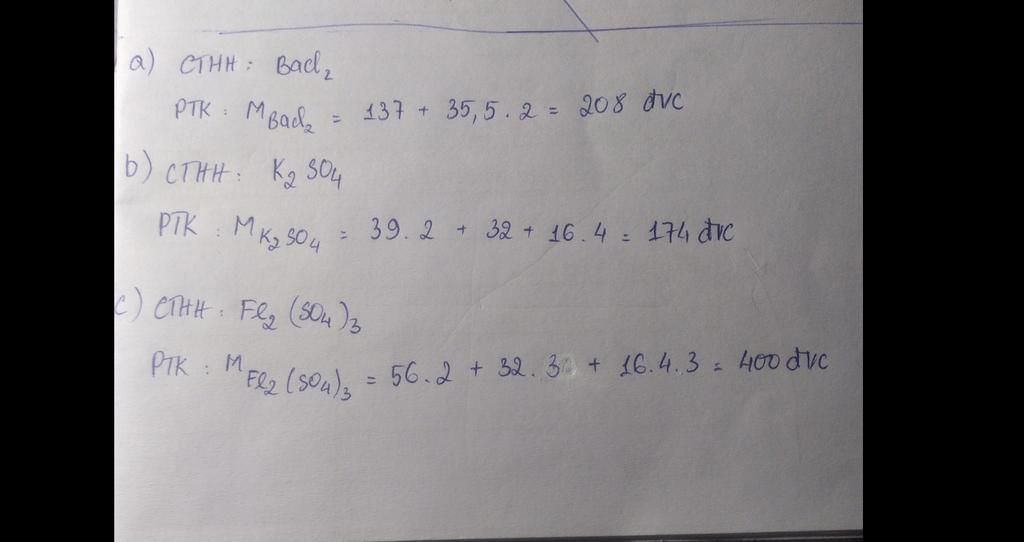 a) CTHH : BaCl₂
PTK : M BaCl₂ = 137 + 35,5 . 2 = 208 đvC
b) CTHH : K₂SO₄
PTK : M K₂SO₄ = 39 . 2 + 32 + 16 . 4 = 174 đvC
c) CTHH : Fe₂(SO₄)₃
PTK : M Fe₂(SO₄)₃ = 56 . 2 + 32 . 3 + 16 . 4 . 3 = 400 đvC